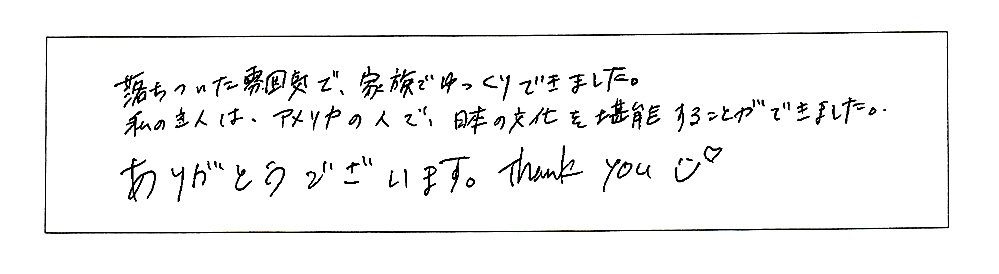 落ちついた雰囲気で、家族でゆっくりできました。
私の主人は、アメリカの人で、日本の文化を堪能することができました。
ありがとうございます。thank you